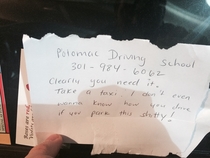 Potomac Driving School
301-984-6062
Clearly you need it.
Take a taxi. I don't even
wanna know how you drive
if you park this shitty!